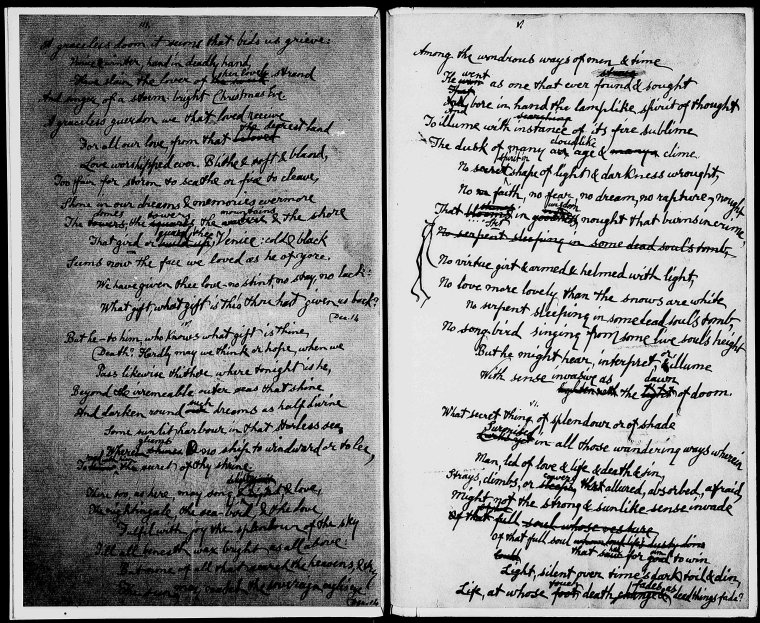 III.
A graceless doom it seems that bids us grieve:
Venice & winter, hand in deadly hand,
Have slain the lover of her lovely strand
And singer of a storm-bright Christmas Eve.
A graceless guerdon we that loved receive
For all our love, from that the dearest land
Love worshipped ever. Blithe & soft & bland,
Too fair for storm to scathe or fire to cleave,
Shone in our dreams & memories evermore
The domes, the towers, the mountains & the shore
That gird or guard thee, Venice: cold & black
Seems now the face we loved as he of yore.
We have given thee love—no stint, no stay, no lack:
What gift, what gift is this thou hast given us back?
Dec. 14
IV
But he—to him, who knows what gift is thine,
Death? Hardly may we think or hope, when we
Pass likewise thither where tonight is he,
Beyond the irremeable outer seas that shine
And darken round such dreams as half divine
Some sunlit harbour in that starless sea
Where gleams no ship to windward or to lee,
To the secret of thy shrine.
There too, as here, may song, delight, & love,
The nightingale, the sea-bird & the dove,
Fulfil with joy the splendour of the sky
Till all beneath wax bright as all above:
But none of all that search the heavens, & try
The sun, may match the sovereign eagle's eye.
V.
Among the wondrous ways of men & time
He went as one that ever found & sought
And bore in hand the lamplike spirit of thought
To illume with instance of its fire sublime
The dusk of many a cloudlike age & clime.
No spirit in shape of light & darkness wrought,
No faith, no fear, no dream, no rapture, nought
That blooms in wisdom, nought that burns in crime,
No serpent sleeping in some dead soul's tomb,
No virtue girt & armed & helmed with light,
No love more lovely than the snows are white,
No serpent sleeping in some dead soul's tomb,
No song-bird singing from some live soul's height
But he might hear, interpret, or illume
With sense invasive as the dawn of doom.
VI.
What secret thing of splendour or of shade
Surmised in all those wandering ways wherein
Man, led of love & life & death & sin,
Strays, climbs, or cowers, allured, absorbed, afraid,
Might not the strong & sunlike sense invade
Of that full soul whose
Of that full soul
that had for aim to win
Light, silent over time's dark toil & din,
Life, at whose touch death fades as dead things fade?